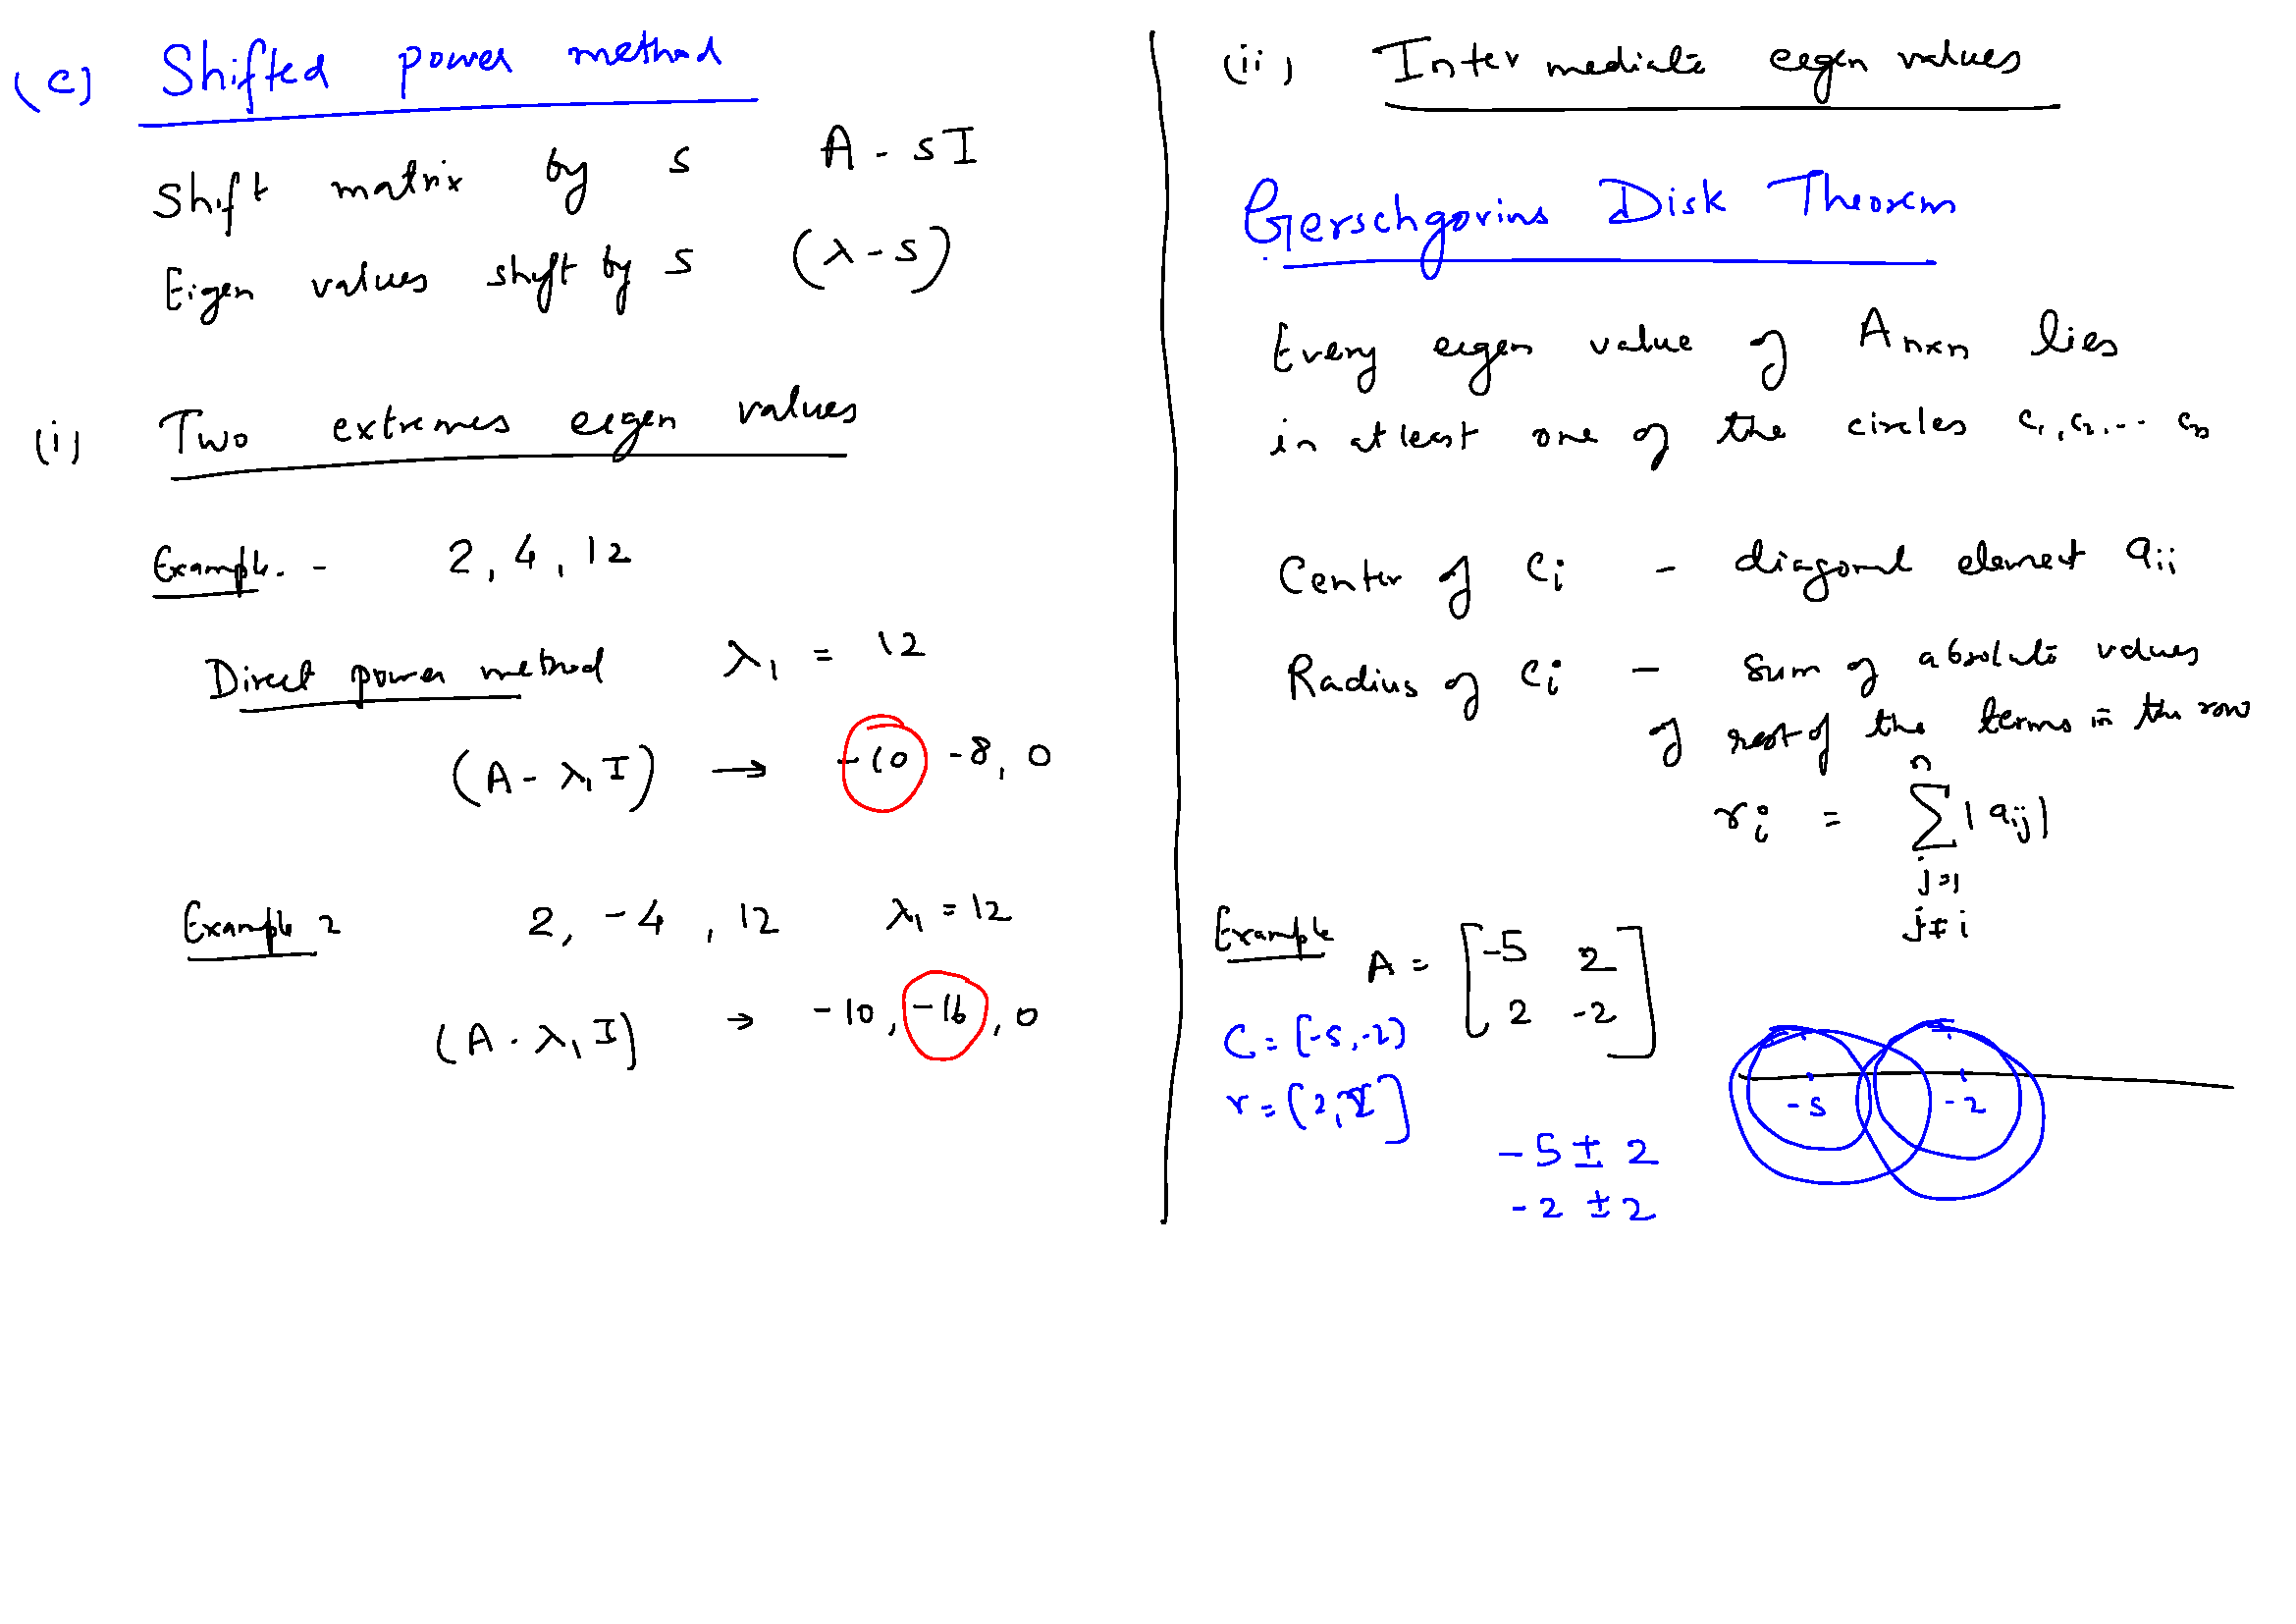 (c) Shifted power method
Shift matrix by s A - sI
Eigen values shift by s (λ - s)
(i) Two extremes eigen values
Example. - 2, 4, 12
Direct power method λ₁ = 12
(A - λ₁I) → -10 -8, 0
Example 2 2, -4, 12 λ₁ = 12
(A - λ₁I) → -10, -16, 0
(ii) Intermediate eigen values
Gerschgorins Disk Theorem
Every eigen value of Anxn lies
in at least one of the circles c₁, c₂, ... cₙ
Center of Ci - diagonal element aii
Radius of Ci - sum of absolute values
of rest of the terms in the row
ri = n∑j=1 j≠i |aij|
Example A = [-5 2
2 -2]
C = [-5, -2)
r = (2, 2]
-5 -2
-5 ± 2
-2 ± 2